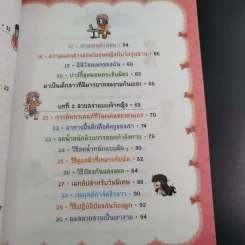 17 - ... - 54
18 - ความแตกต่างของวัยรุ่นหญิงกับวัยรุ่นชาย - 56
19 - มินิไดอะรี่ของฉัน - 60
20 - ปาร์ตี้ชุดนอนกระชับมิตร - 62
มาเป็นเด็กสาวที่มีมารยาทงดงามกันเถอะ - 66
บทที่ 2 สวยสง่าแบบเจ้าหญิง - 69
21 - การค้นหาเสน่ห์ที่โดดเด่นของตนเอง - 70
22 - อาหารมื้อดึกคือศัตรูของเรา - 74
23 - ลดน้ำหนักด้วยการออกกำลังกาย - 76
24 - วิธีลดน้ำหนักแบบผิด ๆ - 80
25 - วิธีดูแลผิวที่เหมาะกับฉัน - 82
26 - วิธีป้องกันแสงแดด - 84
27 - เมกอัปสำหรับวันพิเศษ - 86
28 - กลยุทธ์กำจัดสิว - 88
29 - วิธีปฏิบัติป้องกันก้นงอก - 90
30 - ผมสวยสลวยเป็นเงางาม - 94